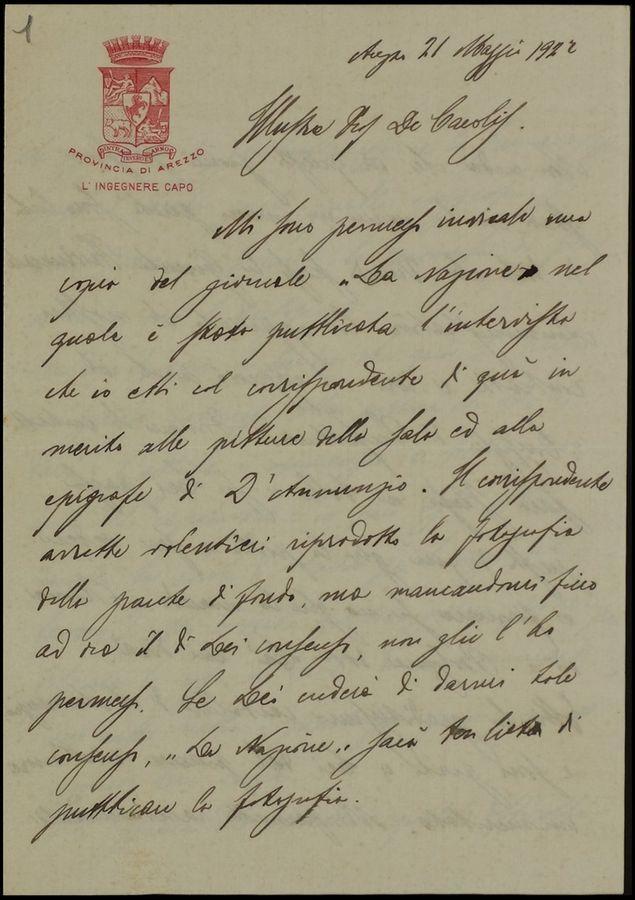 1
INTRA TEVERIM ARNOQ
PROVINCIA DI AREZZO
L'INGEGNERE CAPO
Arezzo 21 Maggio 1922
Illustre Prof De Carolis.
Mi sono permesso inviarle una
copia del giornale "La Nazione" nel
quale è stata pubblicata l'intervista
che io ebbi col corrispondente di quà in
merito alle pitture della sala ed alla
epigrafe di D'Annunzio. Il corrispondente
avrebbe volentieri riprodotto la fotografia
della parete di fondo, ma mancandomi fino
ad ora il di Lei consenso, non glie l'ho
permesso. Se Lei crederà di darmi tale
consenso, "La Nazione" sarà ben lieta di
pubblicare la fotografia.